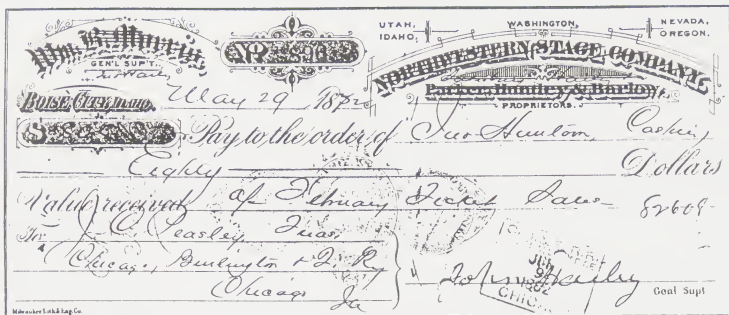 UTAH, IDAHO, WASHINGTON, NEVADA, OREGON.
Wm. B. Morris,
GEN'L SUPT.
No
NORTHWESTERN STAGE COMPANY,
Parker, Huntley & Barlow,
PROPRIETORS.
BOISE CITY, IDAHO, May 29 1872
Pay to the order of Jno Huntoon, Cashier
Eighty Dollars
Value received a/c February Ticket Sales 82609
To J. C. Peasley, Treas
Chicago, Burlington & Q. Ry
Chicago
John Hailey Genl Supt
JUN
CHICAGO
Milwaukee Lith & Eng. Co.